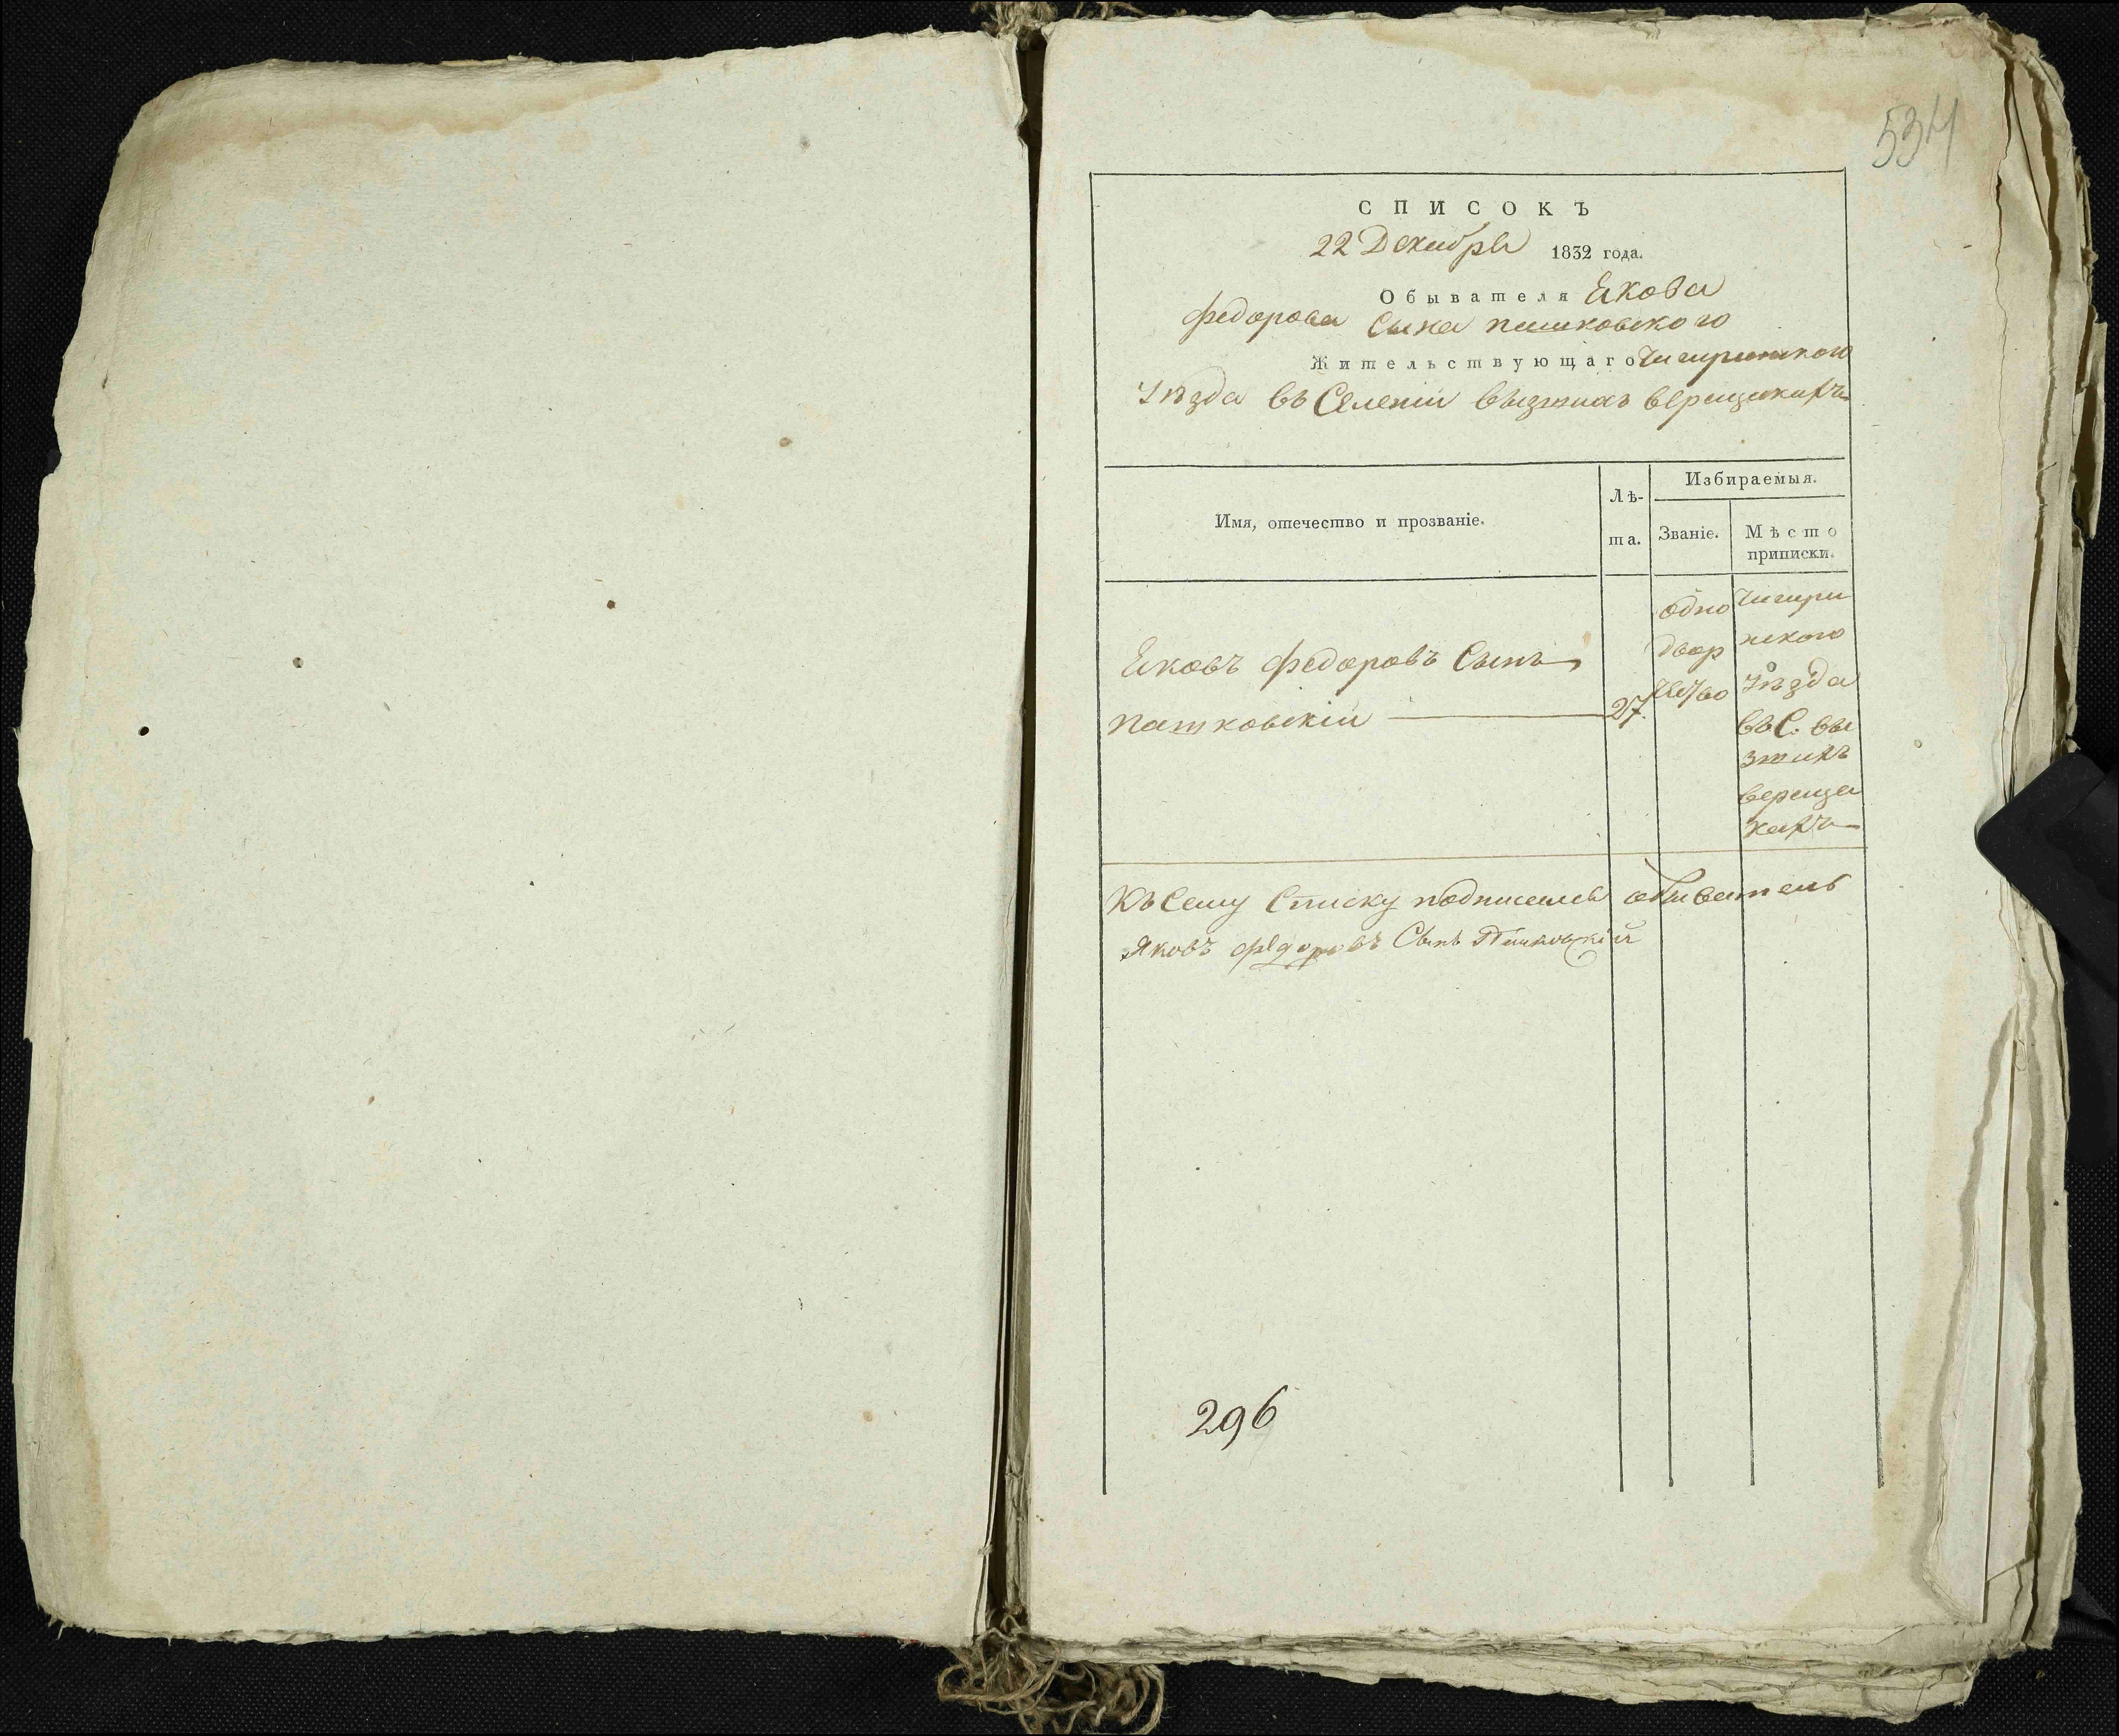 534
СПИСОКЪ
22 Декабря 1832 года.
Обывателя Якова
Федорова Сына пашковского
Жительствующаго Чигиринского
Уѣзда въ Селеніи
Имя, отечество и прозваніе.
Лѣ-
та.
Избираемыя.
Званіе.
Мѣсто
приписки.
Яковъ Федоровъ Сынъ
пашковскій
27.
одно
двор
Чигири
нского
Уѣзда
въ С. вы
зтихъ
вереща
кахъ
Къ Сему Списку подписался обыватель
Яковъ Федоровъ Сынъ Пашковскій
296